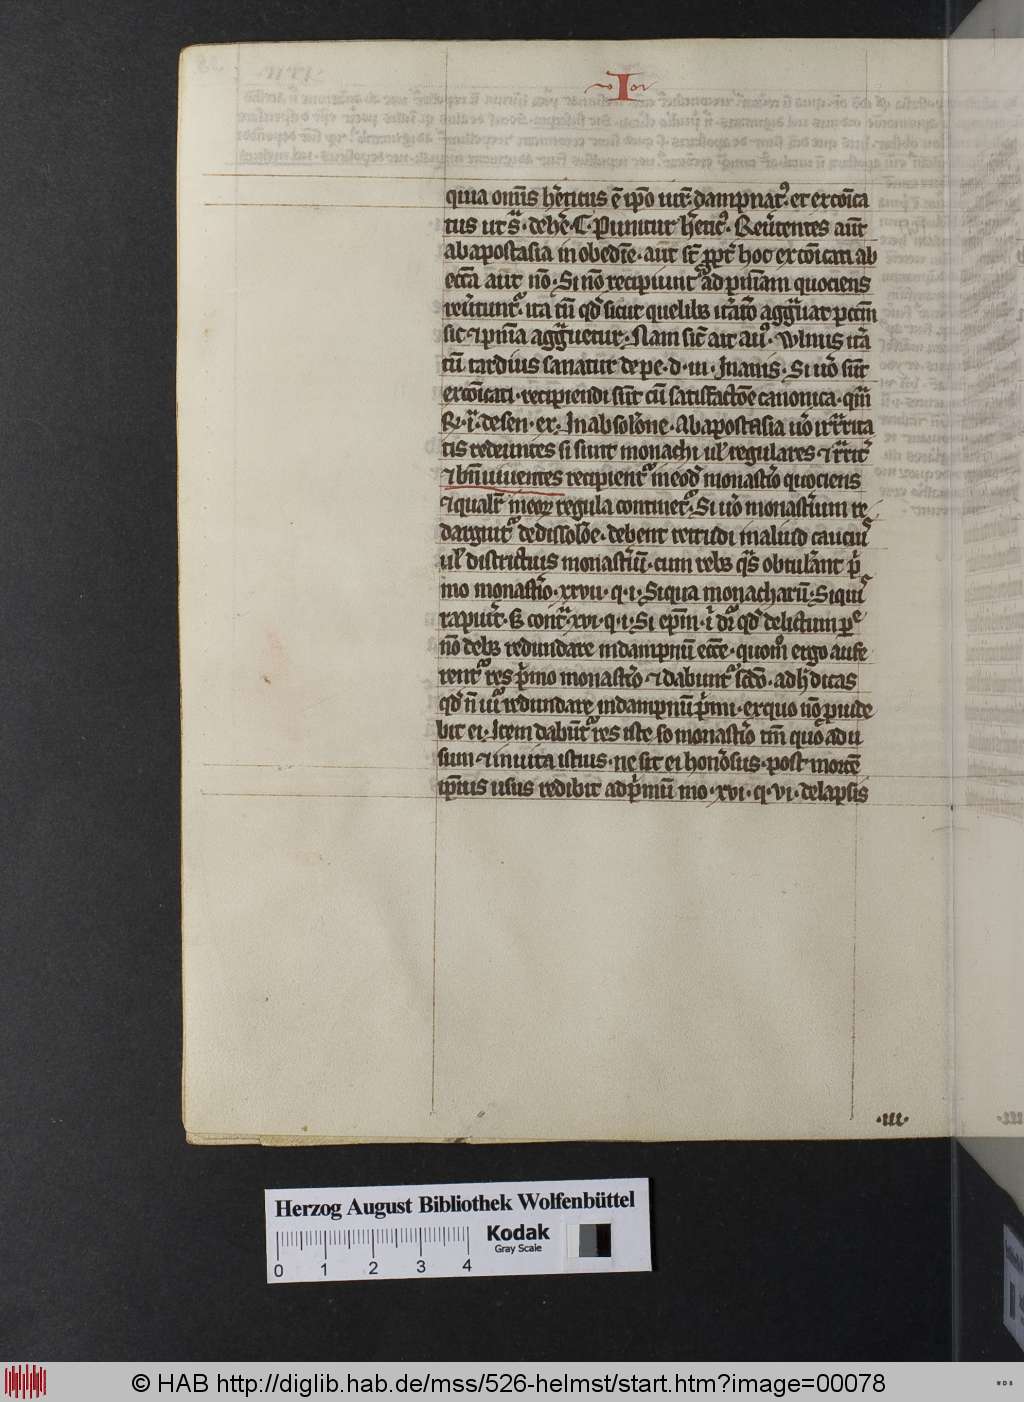 I
quia om̄is h̄eticus ē ip̄o iure dampnatꝰ · et exco̅ica
tus ut s̄ · de he · C · Punitur h̄eticꝰ · Reūtentes aūt
ab apostasia in obediē · aūt s̄t ꝓpt̄ hoc exco̅icati ab
ecc̄a aut nō · Si nō recipiunt᷑ ad pn̄iam quociens
reūtunt᷑ · ita tn̄ qd̄ sicut quelibꝫ it̄atō agg̃uat pcc̄m
sic ⁊ pn̄ia agg̃uetur · Nam sic̄ ait auꝰ · Vlnus it̄a
tū tardius sanatur de pe · d · iii · Inanis · Si uō sūt
exco̅icati · recipiendi sūt cū satisfactōe canonica · qm̄
R · i · de sen · ex · In absolōne · Ab apostasia uō
tis redeuntes si sunt monachi ul̄ regulares ⁊
⁊ bn̄ uiuentes recipient᷑ in eod̄ monast̄io quociens
⁊ qualit̄ in eoꝝ regula continet᷑ · Si uō monast̄ium re
darguit᷑ de dissolōe · debent retrudi in aliud cauciꝰ
ul̄ districtius monast̄iū · cum rebꝫ q̄s obtul̄ant p̄
mo monast̄io · xxvii · q · i · Si qua monacharū · Si quis
rapuit̄ · S cont̄ · xvi · q · i · Si ep̄m · i dr̄ qd̄ delictum ꝑso
nē debꝫ redundare in dampnū ecc̄e · quom̄ ergo aufe
rent᷑ res p̄mo monast̄io ⁊ dabunt᷑ scd̄o · ad h̄ dicas
qd̄ n̄ uidet᷑ redundare in dampnū p̄mi · ex quo nō ꝓuide
bit ei · Item dabūt᷑ res iste so monast̄io tm̄ quo ad u
sum ⁊ in uita istius · ne sit ei honosus · post mortē
ip̄ius usus redibit ad p̄mū mo · xvi · q · vi · de lapsis
· III ·
Herzog August Bibliothek Wolfenbüttel
Kodak
Gray Scale
0 1 2 3 4
© HAB http://diglib.hab.de/mss/526-helmst/start.htm?image=00078